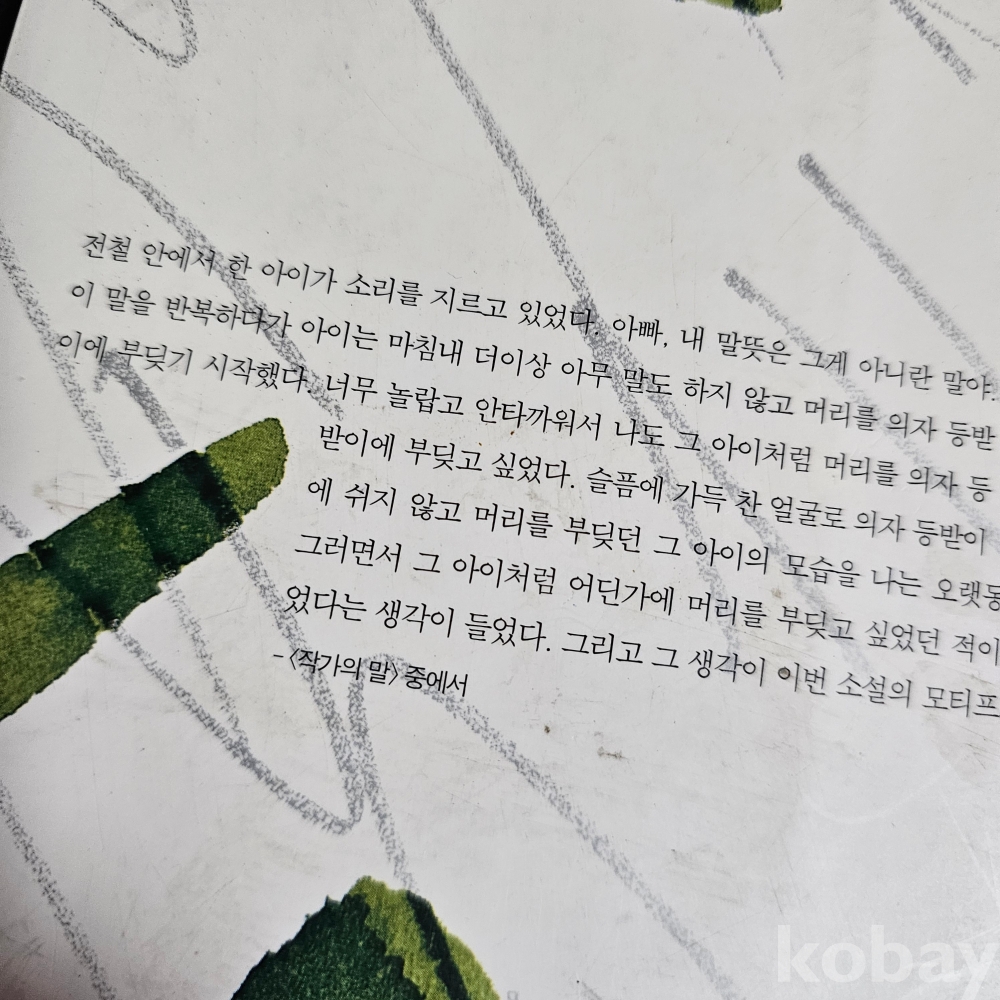 전철 안에서 한 아이가 소리를 지르고 있었다. 아빠, 내 말뜻은 그게 아니란 말야.
이 말을 반복하다가 아이는 마침내 더이상 아무 말도 하지 않고 머리를 의자 등받
이에 부딪기 시작했다. 너무 놀랍고 안타까워서 나도 그 아이처럼 머리를 의자 등
받이에 부딪고 싶었다. 슬픔에 가득 찬 얼굴로 의자 등받이
에 쉬지 않고 머리를 부딪던 그 아이의 모습을 나는 오랫동
그러면서 그 아이처럼 어딘가에 머리를 부딪고 싶었던 적이
었다는 생각이 들었다. 그리고 그 생각이 이번 소설의 모티프
-〈작가의 말〉 중에서
kobay